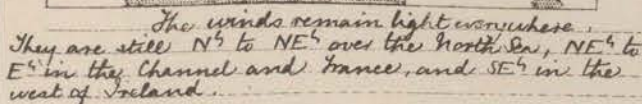 The winds remain light everywhere.
They are still Nʰ to NEʰ over the North Sea, NEʰ to
Eʰ in the Channel and France, and SEʰ in the
west of Ireland.